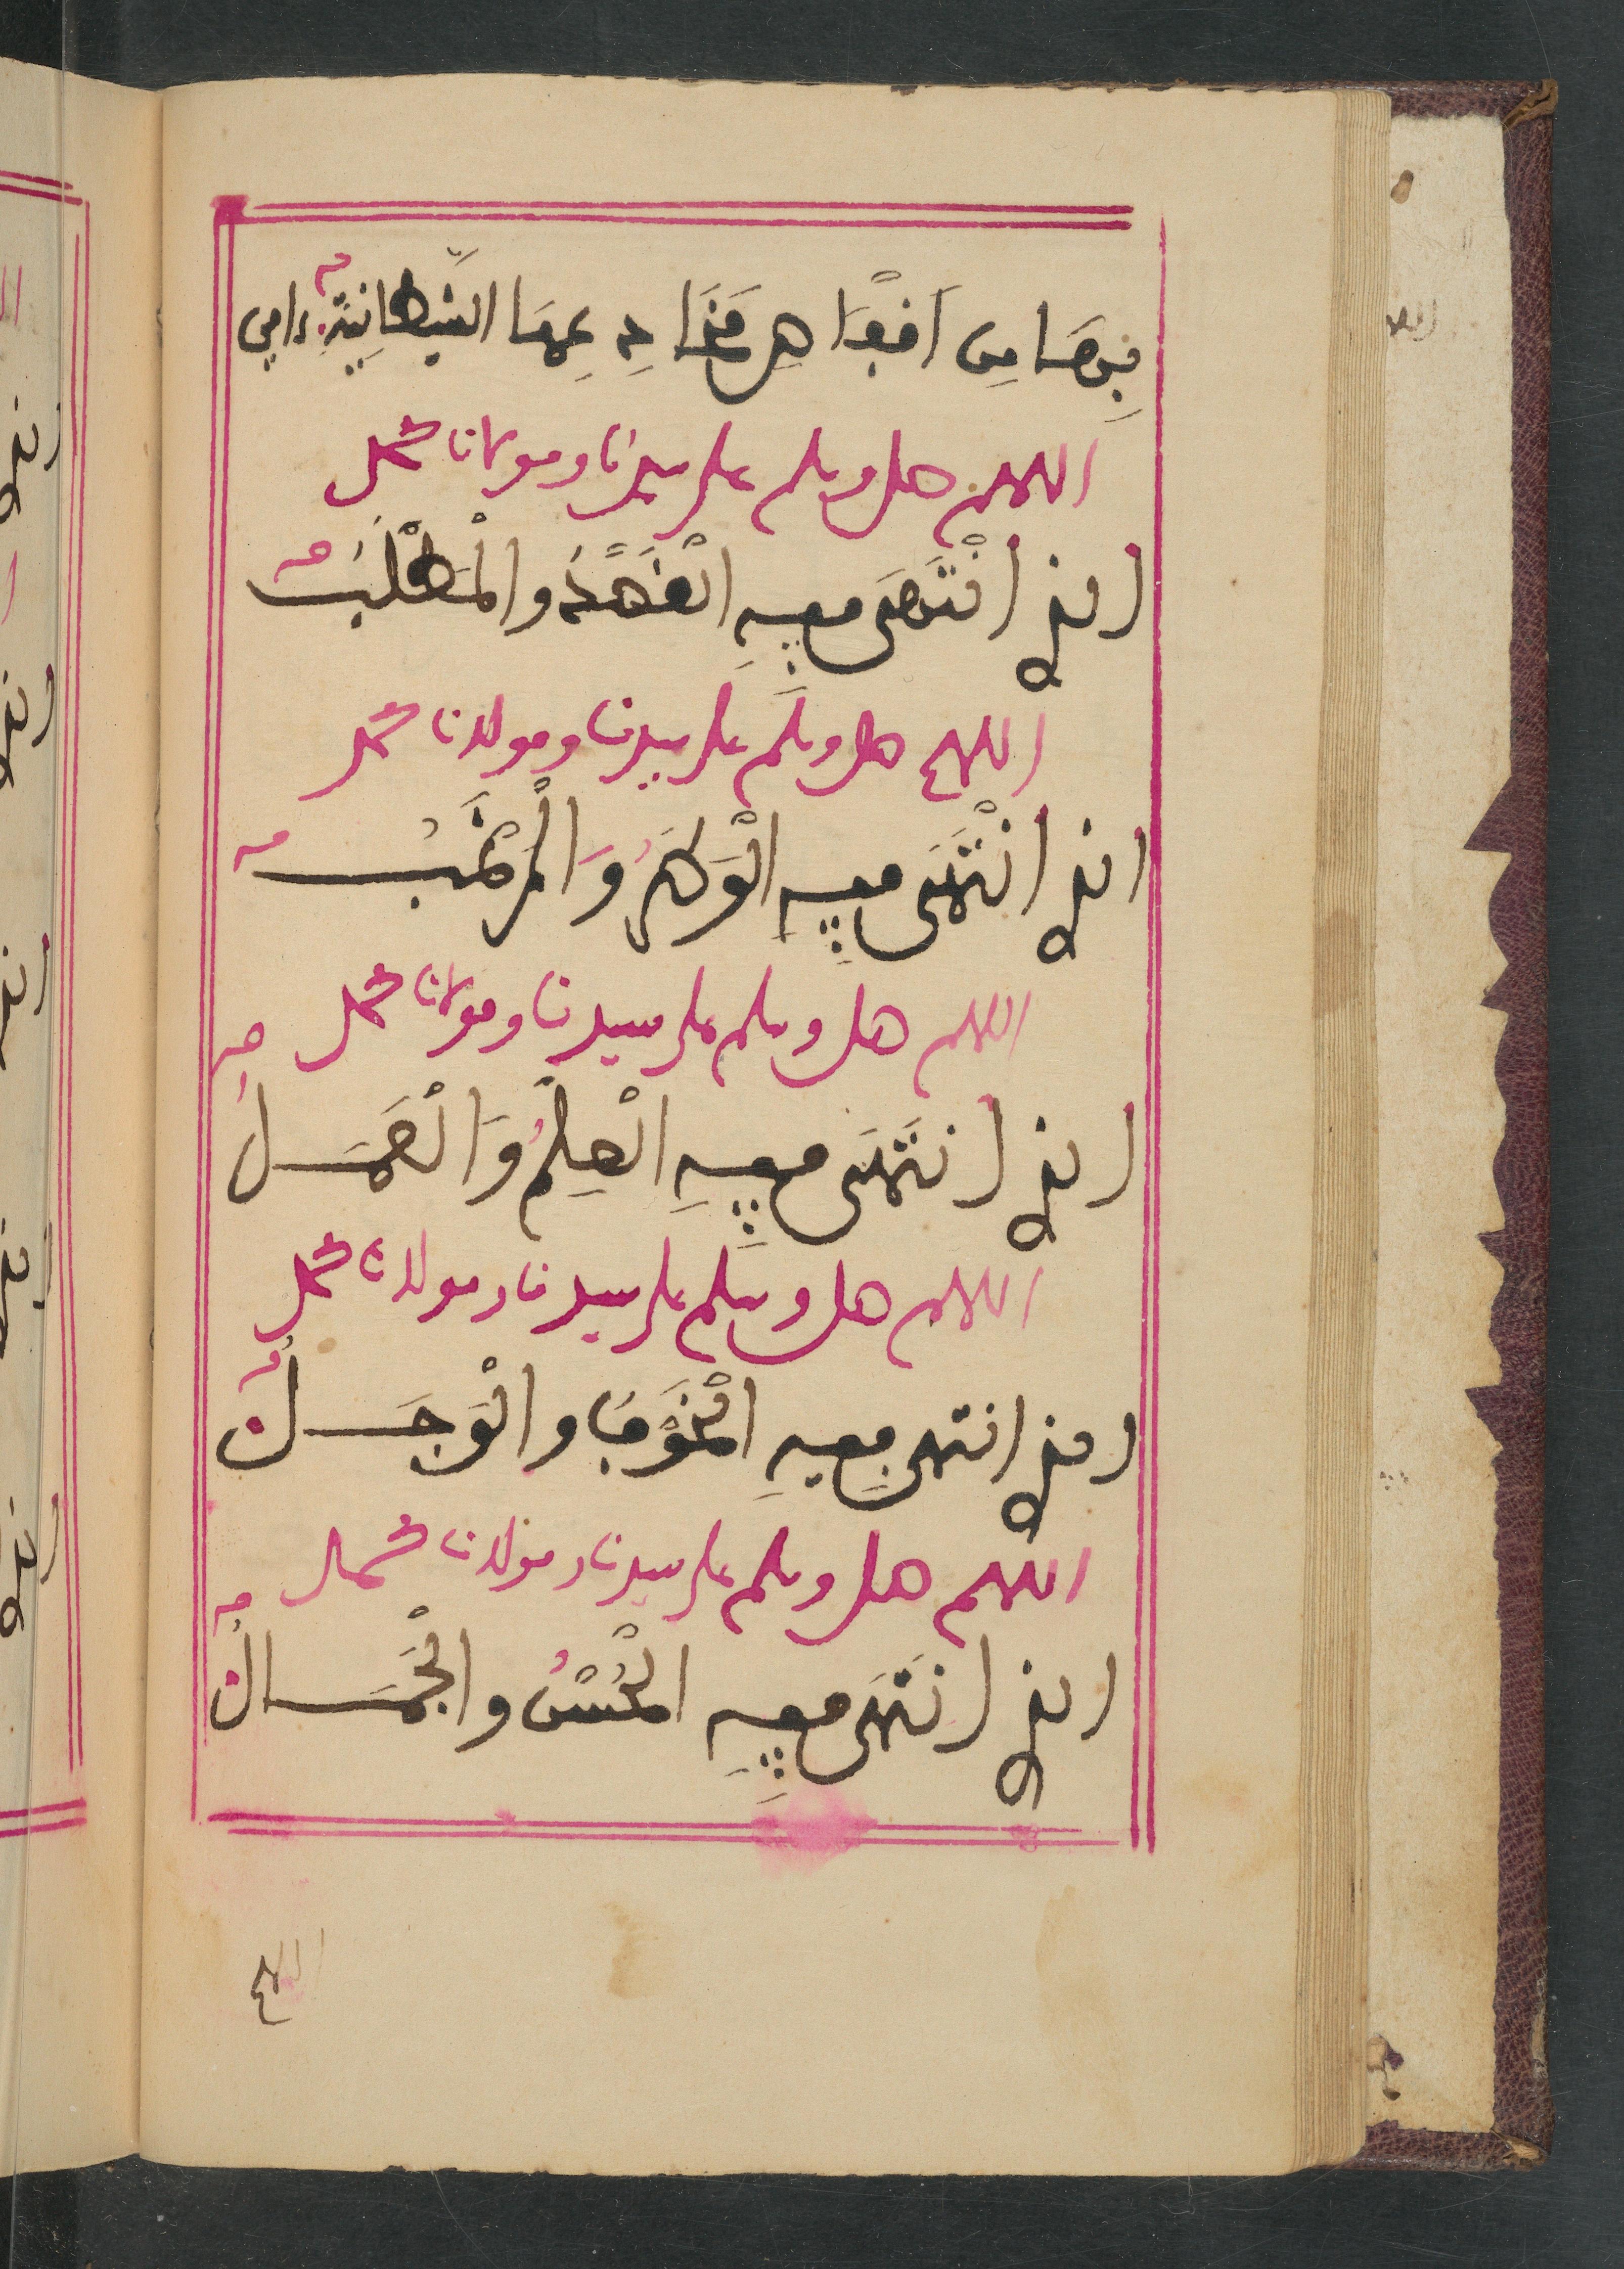 اللهم صل وسلم على سيدنا ومولانا محمد
الذي انْتَهَى فيهِ الْقَصْدُ وَالْمَطْلَبُ
اللهم صل وسلم على سيدنا ومولانا محمد
الذي انْتَهَى فيهِ الْوَطَرُ وَالْمَرْغَبُ
اللهم صل وسلم على سيدنا ومولانا محمد
الذي انتَهَى فيهِ الْعِلْمُ وَالْعَمَلُ
اللهم صل وسلم على سيدنا ومولانا محمد
الذي انتهى فيهِ الْخَوْفُ والْوَجَلُ
اللهم صل وسلم على سيدنا ومولانا محمد
الذي انتَهَى فيهِ الْحُسْنُ والْجَمَالُ
اللهم